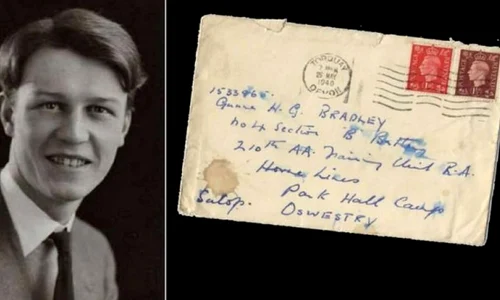 TORQUAY
1940
DEVON
1533965.
Gunner H. G. BRADLEY
No 4 Section B
210th AA. Training Unit R.A.
Home Lines
Park Hall Camp
Salop. OSWESTRY